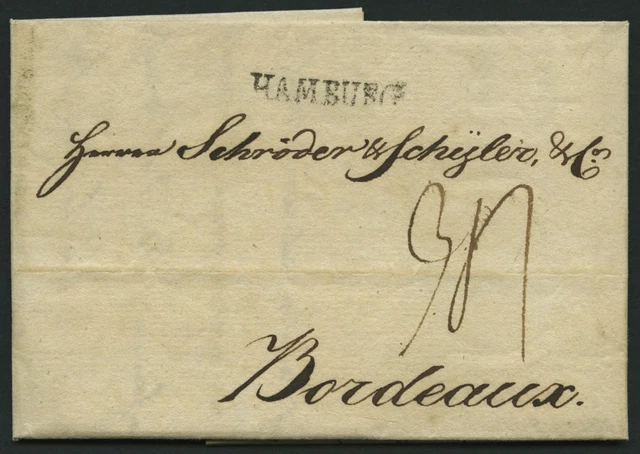 HAMBURG
Herren Schröder & Schÿler, & Co.
Bordeaux.